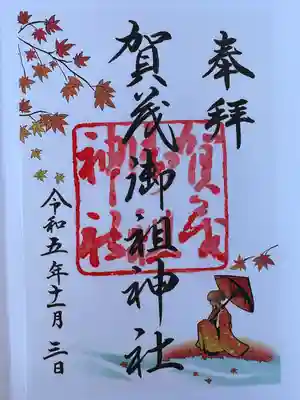 奉拝
賀茂御祖神社
令和五年十一月三日
賀茂
神社